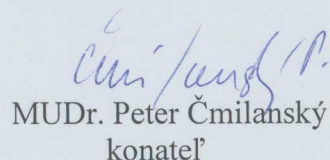 MUDr. Peter Čmilanský
konateľ